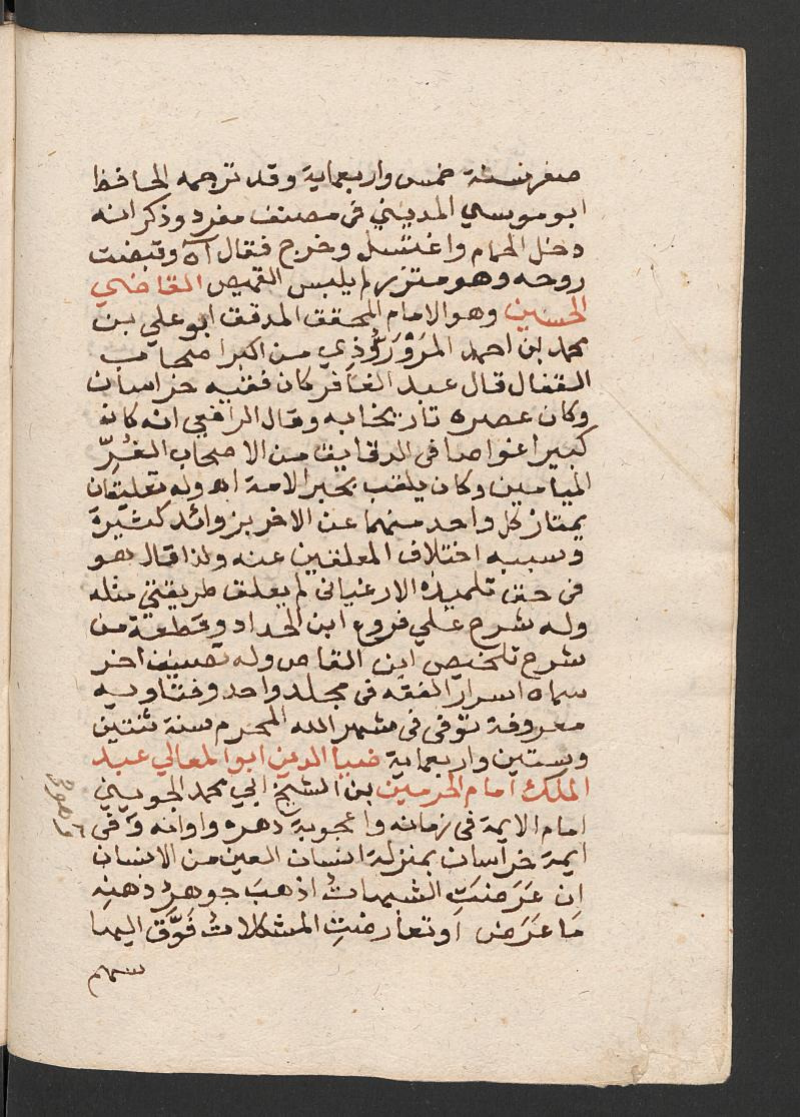 صفر سنة خمس واربعماية وقد ترجمه الحافظ
ابوموسي المديني في مصنف مفرد وذكر انه
دخل الحمام واغتسل وخرج فقال آه وقبضت
روحه وهو متزر لم يلبس القميص القاضي
الحسين وهو الامام المحقق المدقق ابو علي بن
محمد بن احمد المَرْوَرُّوْذِي من اكبر اصحاب
القفال قال عبد الغافر كان فقيه خراسان
وكان عصره تاريخا به وقال الرافعي انه كان
كبيرا غواصا في الدقايق من الاصحاب الغُرِّ
الميامين وكان يلقب بحبر الامة اه وله تعليقان
يمتاز كل واحد منهما عن الاخر بزوائد كثيرة
وسببه اختلاف المعلقين عنه ولذا قال هو
في حق تلميذه الارغياني لم يعلق طريقتي مثله
وله شرح علي فروع ابن الحداد وقطعة من
شرح تلخيص ابن القاص وله تصنيف اخر
سماه اسرار الفقه في مجلد واحد وفتاويه
معروفة توفي في شهر الله المحرم سنة ثنتين
وستين واربعماية ضيا الدين ابوا لمعالي عبد
الملك امام الحرمين بن الشيخ ابي محمد الجويني
امام الايمة في زمانه واعجوبة دهره واوانه وفي
ايمة خراسان بمنزلة انسان العين من الانسان
ان عَرَضتِ الشبهاتُ اذهبَ جوهرُ ذهنِه
مَا عَرَض او تعارضتِ المشكلاتُ فَوَّق اليها
سهم